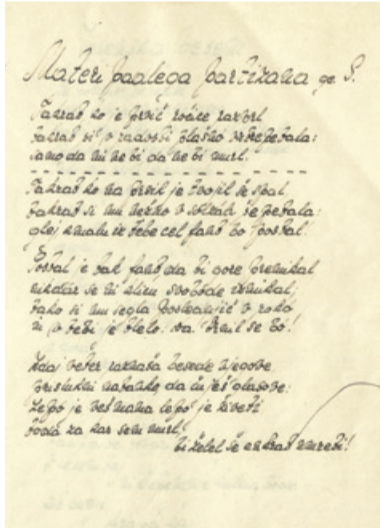 Materi padlega partizana go. S.
Takrat ko je prvič ročice razprl
takrat si v radosti plašno vztrepetala:
samo da mi ne bi da ne bi umrl.
Takrat ko na prsih je tvojih še spal
takrat si mu nežno v solzah šepetala:
glej kmalu iz tebe cel fant bo postal!
Postal je tak fant da bi gore premikal
nikdar se ni zlim izmikal;
tako si mu segla poslednjič v roko
in v tebi je htelo: saj vrnil se bo!
Zdaj veter raznaša besede njegove
prisluhni natanko, da čuješ glasove:
Lepo je veš mama lepo je živeti
toda za kar sem umrl,
bi želel še enkrat umreti!